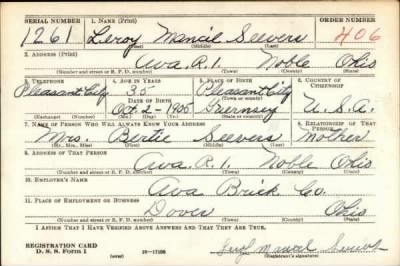 SERIAL NUMBER 1. NAME (Print) ORDER NUMBER
1261 Leroy Mancil Seevers 406
(First) (Middle) (Last)
2. ADDRESS (Print)
Ava. R.1. Noble Ohio
(Number and street or R. F. D. number) (Town) (County) (State)
3. TELEPHONE 4. AGE IN YEARS 5. PLACE OF BIRTH 6. COUNTRY OF CITIZENSHIP
Pleasant City 35 Pleasant City
DATE OF BIRTH (Town or county)
Oct. 2-1905 Guernsey U.S.A.
(Exchange) (Number) (Mo.) (Day) (Yr.) (State or country)
7. NAME OF PERSON WHO WILL ALWAYS KNOW YOUR ADDRESS 8. RELATIONSHIP OF THAT PERSON
Mrs. Bertie Seevers Mother
(Mr., Mrs., Miss) (First) (Middle) (Last)
9. ADDRESS OF THAT PERSON
Ava. R.1. Noble Ohio
(Number and street or R. F. D. number) (Town) (County) (State)
10. EMPLOYER'S NAME
Ava Brick Co.
11. PLACE OF EMPLOYMENT OR BUSINESS
Dover Ohio
(Number and street or R. F. D. number) (Town) (County) (State)
I AFFIRM THAT I HAVE VERIFIED ABOVE ANSWERS AND THAT THEY ARE TRUE.
REGISTRATION CARD
D. S. S. Form 1 (over) 16-17105 Leroy Mancil Seevers
(Registrant's signature)